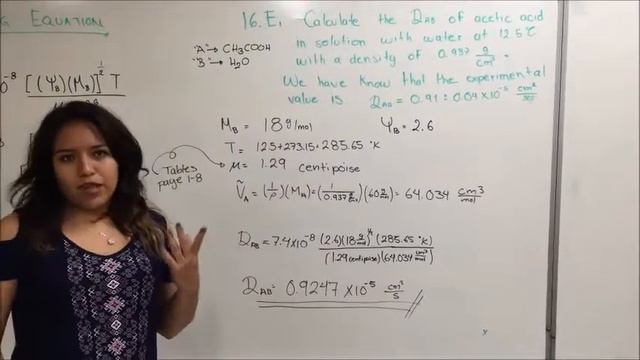 EQUATION
0^-8 [(Ψ_B)(M_B)]^1/2 T
16.E. Calculate the D_AB of acetic acid
in solution with water at 12.5°C
with a density of 0.937 g/cm^3.
"A" → CH3COOH
"B" → H2O
We have know that the experimental
value is D_AB = 0.91 ± 0.04 x10^-5 cm^2/sec
M_B = 18 g/mol Ψ_B = 2.6
T = 12.5+273.15=285.65 °K
μ = 1.29 centipoise
Tables
page 1-8
Ṽ_A = (1/ρ)(M_A)=(1/0.937 g/cm^3)(60 g/mol)= 64.034 cm3/mol
D_AB = 7.4x10^-8 (2.6)(18 g/mol)^1/2 (285.65 °K)
(1.29 centipoise)(64.034 cm^3/mol)
D_AB= 0.9247 x10^-5 cm^2/s